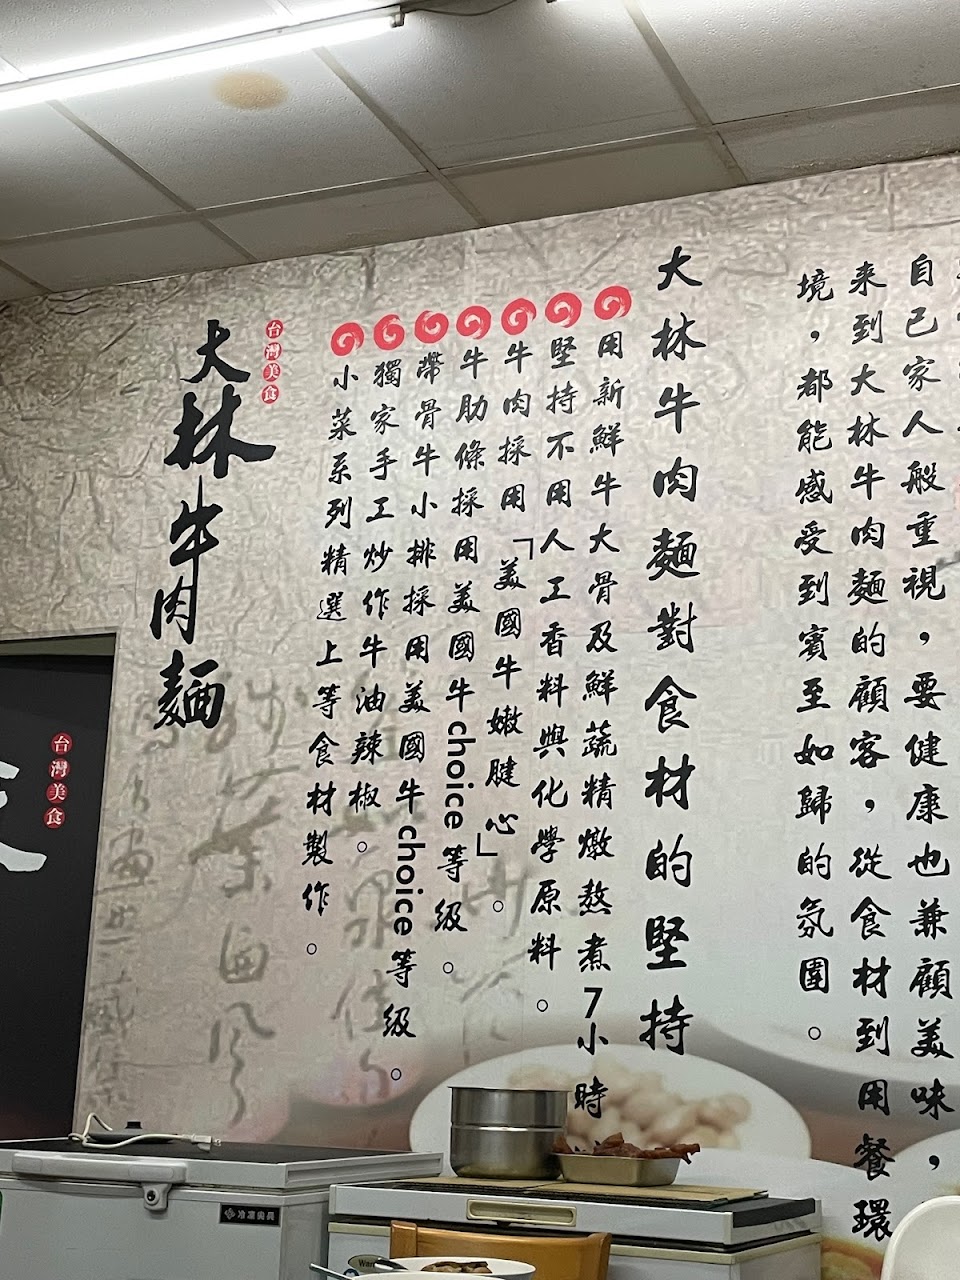 自己家人般重視，要健康也兼顧美味，
來到大林牛肉麵的顧客，從食材到用餐環
境，都能感受到賓至如歸的氛圍。
大林牛肉麵對食材的堅持
用新鮮牛大骨及鮮蔬精燉熬煮7小時
堅持不用人工香料與化學原料。
牛肉採用「美國牛嫩腱心」。
牛肋條採用美國牛choice等級。
帶骨牛小排採用美國牛choice等級。
獨家手工炒作牛油辣椒。
小菜系列精選上等食材製作。
台灣美食
大林牛肉麵
台灣美食
冷凍尖兵